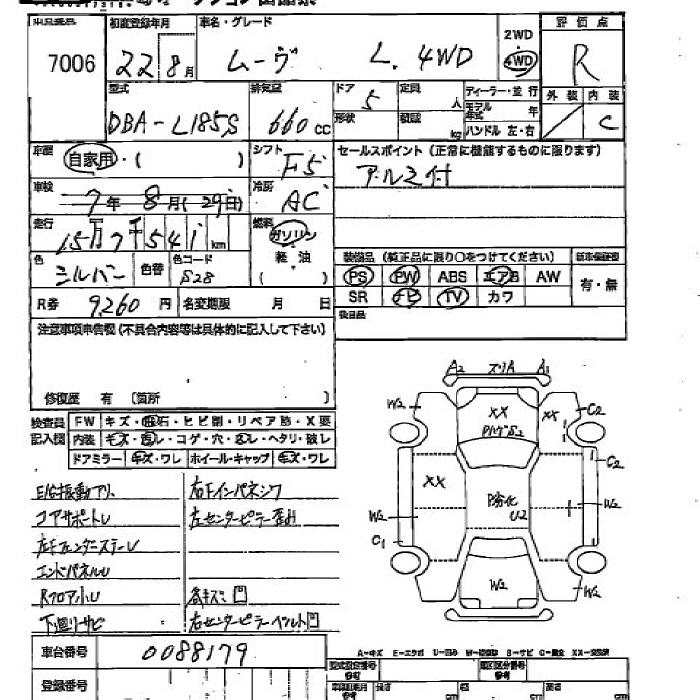 7006
初度登録年月
22年8月
車名・グレード
ムーヴ L. 4WD
2WD
4WD
評価点
R
型式
DBA-L185S
排気量
660cc
ドア
5
定員
人
形状
積載
kg
ディーラー・並行
モデル年式 年
ハンドル 左・右
外装
内装
C
車歴
自家用・( )
シフト
F5
セールスポイント (正常に機能するものに限ります)
アルミ付
車検
7年8月(29日)
冷房
AC
走行
15万7千541km
燃料
ガソリン
軽油
( )
色
シルバー
色替
色コード
S28
装備品 (純正品に限り○をつけてください)
新車保証書
PS PW ABS エアB AW
有・無
SR ナビ TV カワ
R券 9,260円
名変期限 月 日
後日品
注意事項申告欄(不具合内容等は具体的に記入して下さい)
修復歴 有 (箇所 )
検査員記入図
FW キズ・飛石・ヒビ割・リペア跡・X要
内装 キズ・汚レ・コゲ・穴・スレ・ヘタリ・破レ
ドアミラー キズ・ワレ
ホイール・キャップ キズ・ワレ
右Fインパネシワ
コアサポートU
左センターピラー歪み
エンドパネルU
RフロアハU
各キズミ凹
下廻リサビ
右センターピラーベルト凹
A2 スリA A1
W2 XX XX C2
PハゲS2
C2
XX
P劣化
U2
W2 W2
C1
W2
W2
車台番号
0088179
登録番号
A-キズ E-エクボ U-凹み W-補修跡 S-サビ C-腐食 XX-交換済
型式指定番号
類別区分番号
長さ cm
cm
cm